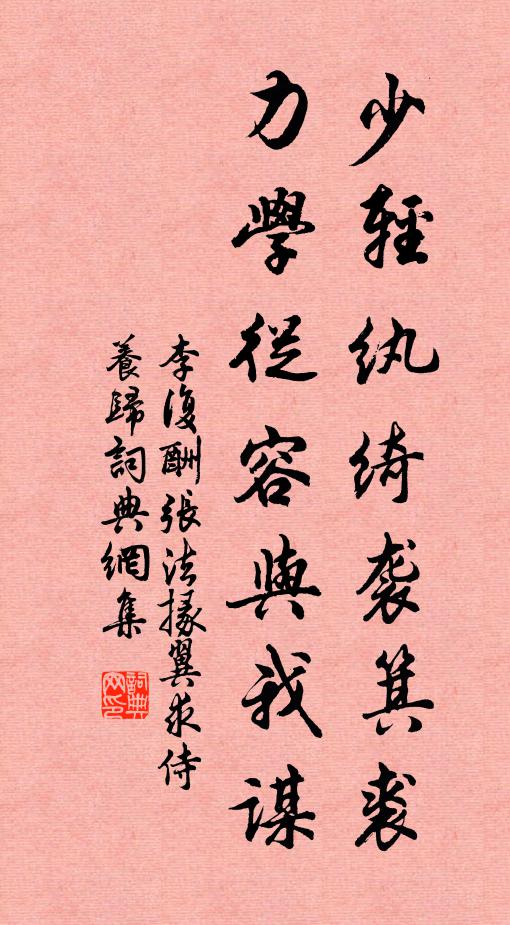 少輕紈綺袭箕裘
力學從容與我謀
李復酬張法掾翼求侍
養歸詞典網集
詞典網印